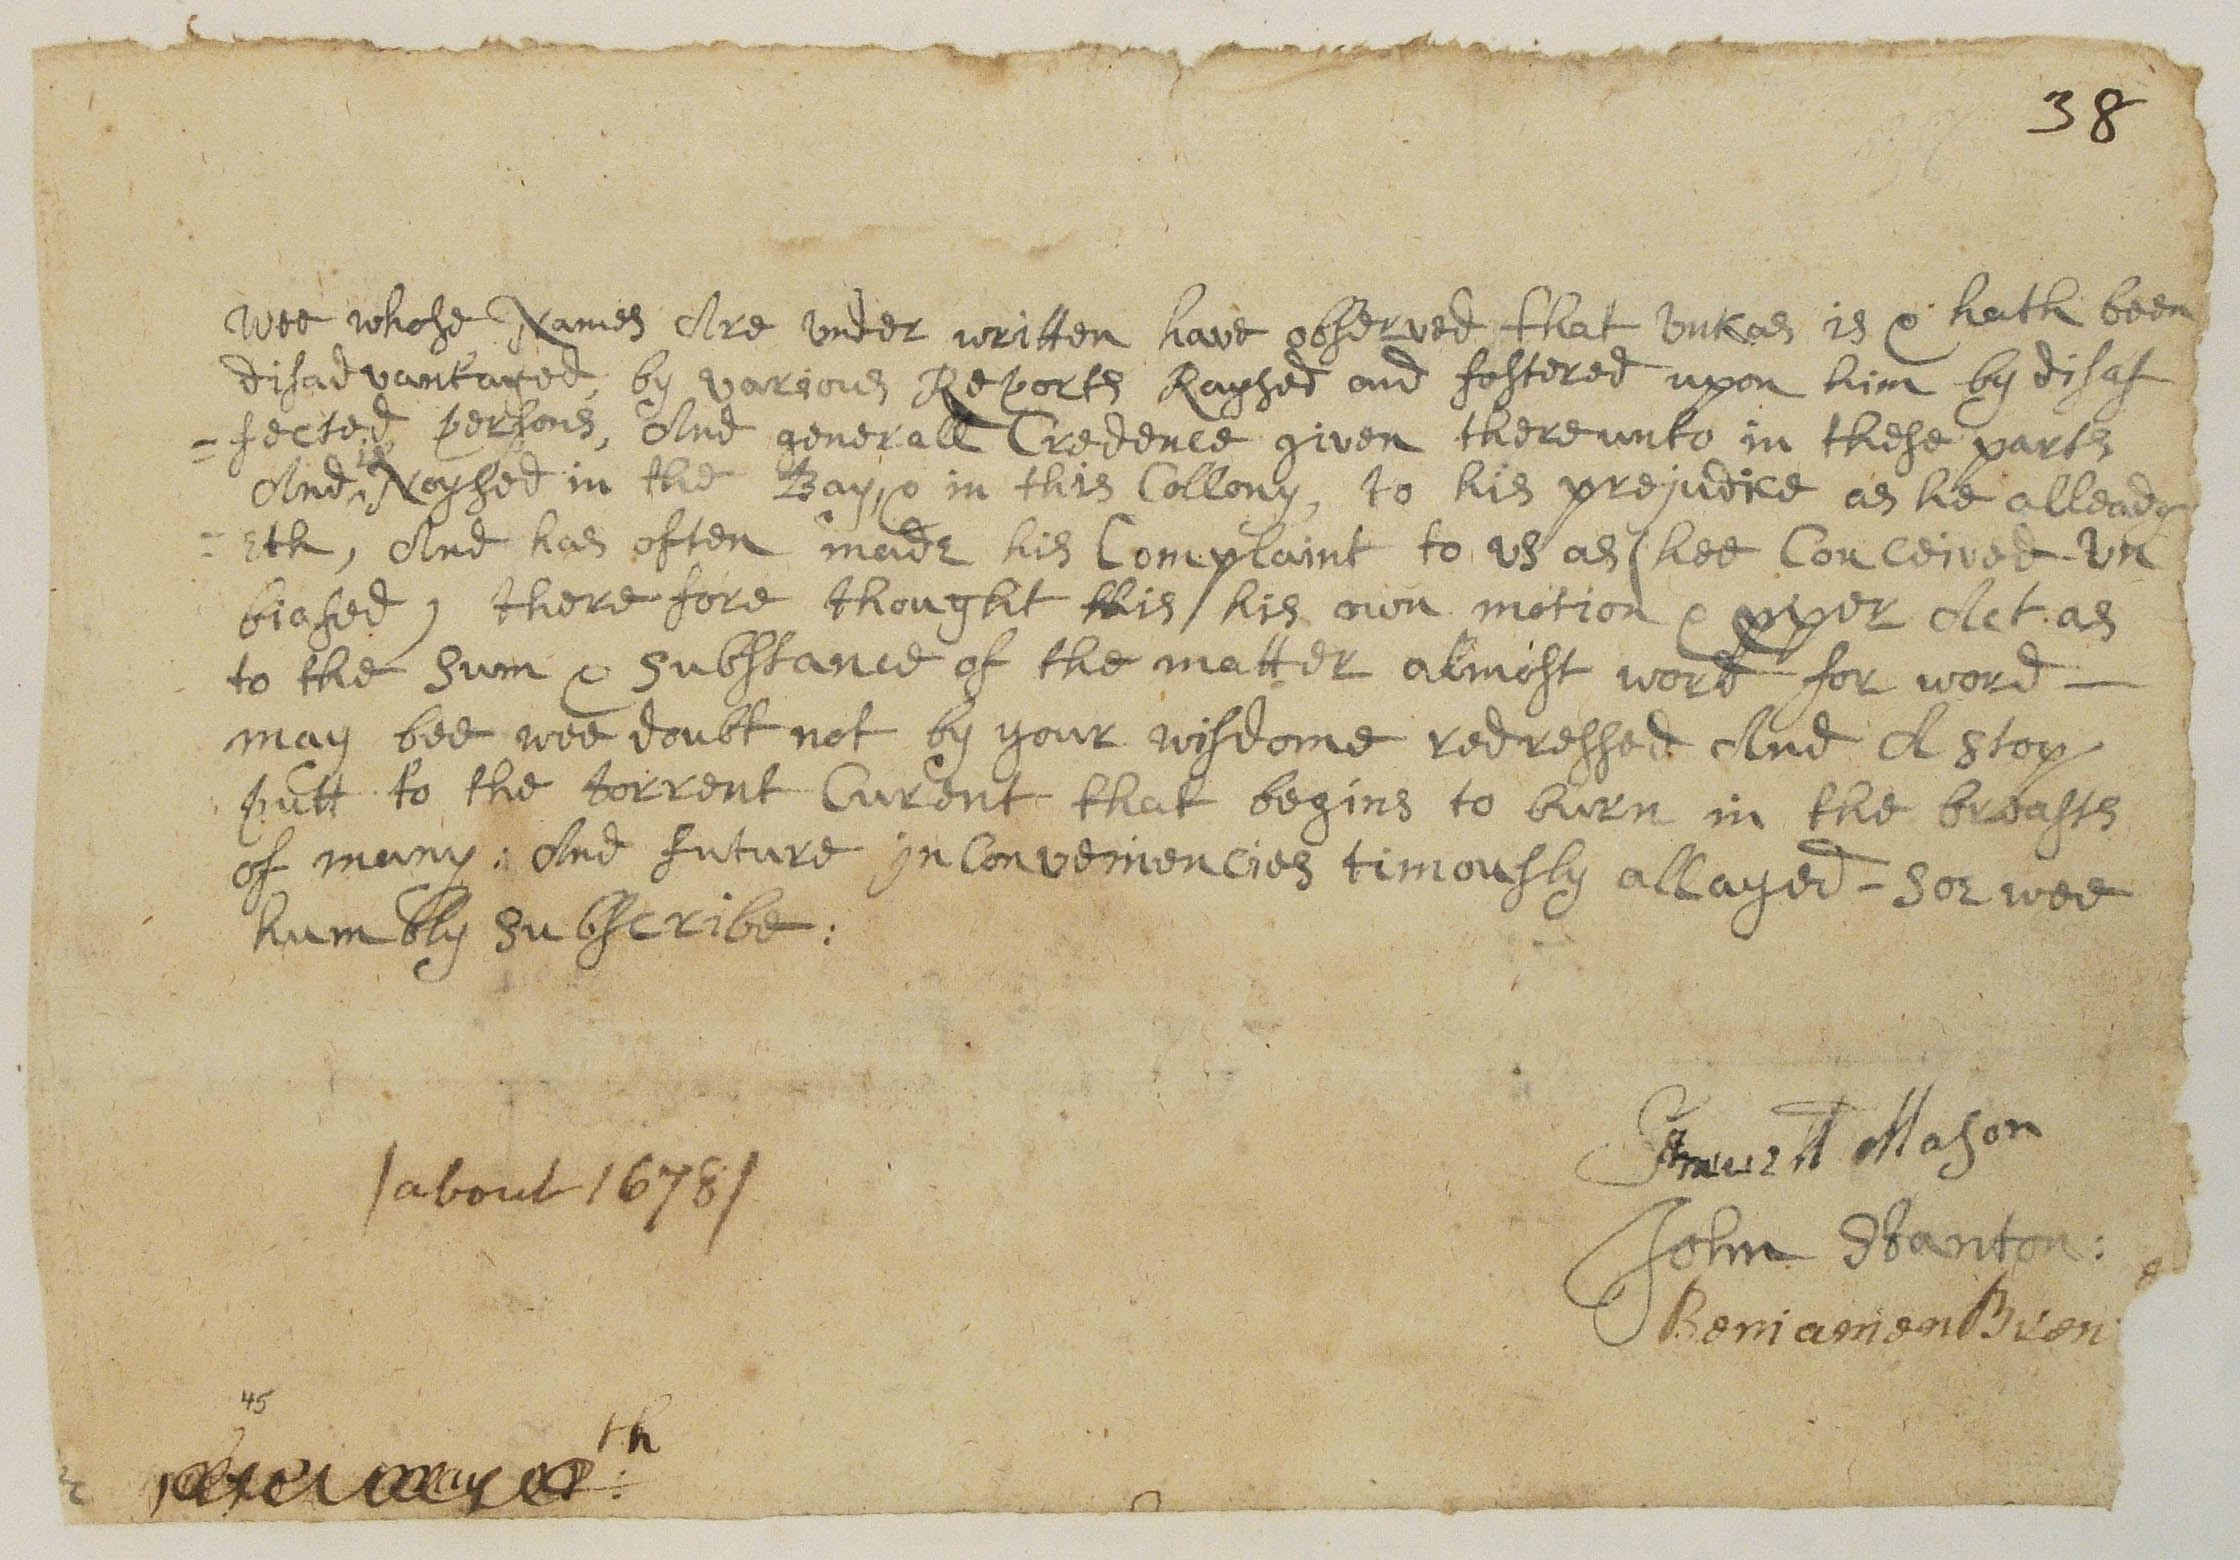 38
Wee whose Names Are vnder written have observed that vnkas is & hath been
disadvantaged, by various Reports Raysed and fostered upon him by disaf
=fected persons, And generall Credence given thereunto in these parts
And is Noysed in the Bay, & in this Collony, to his prejudice as he alleadg
=eth, And has often made his Complaint to vs as (hee Conceived vn
biased) therefore thought this his own motion & proper Act as
to the sum & substance of the matter almost word for word —
may bee wee doubt not by your wisdome redressed And A stop
putt to the torrent Curent that begins to burn in the breasts
of many: And future inconveniencies timously allayed - soe wee
humbly subscribe:
Samuell Mason
/about 1678/
John Stanton:
Beniamen Bren
45
th